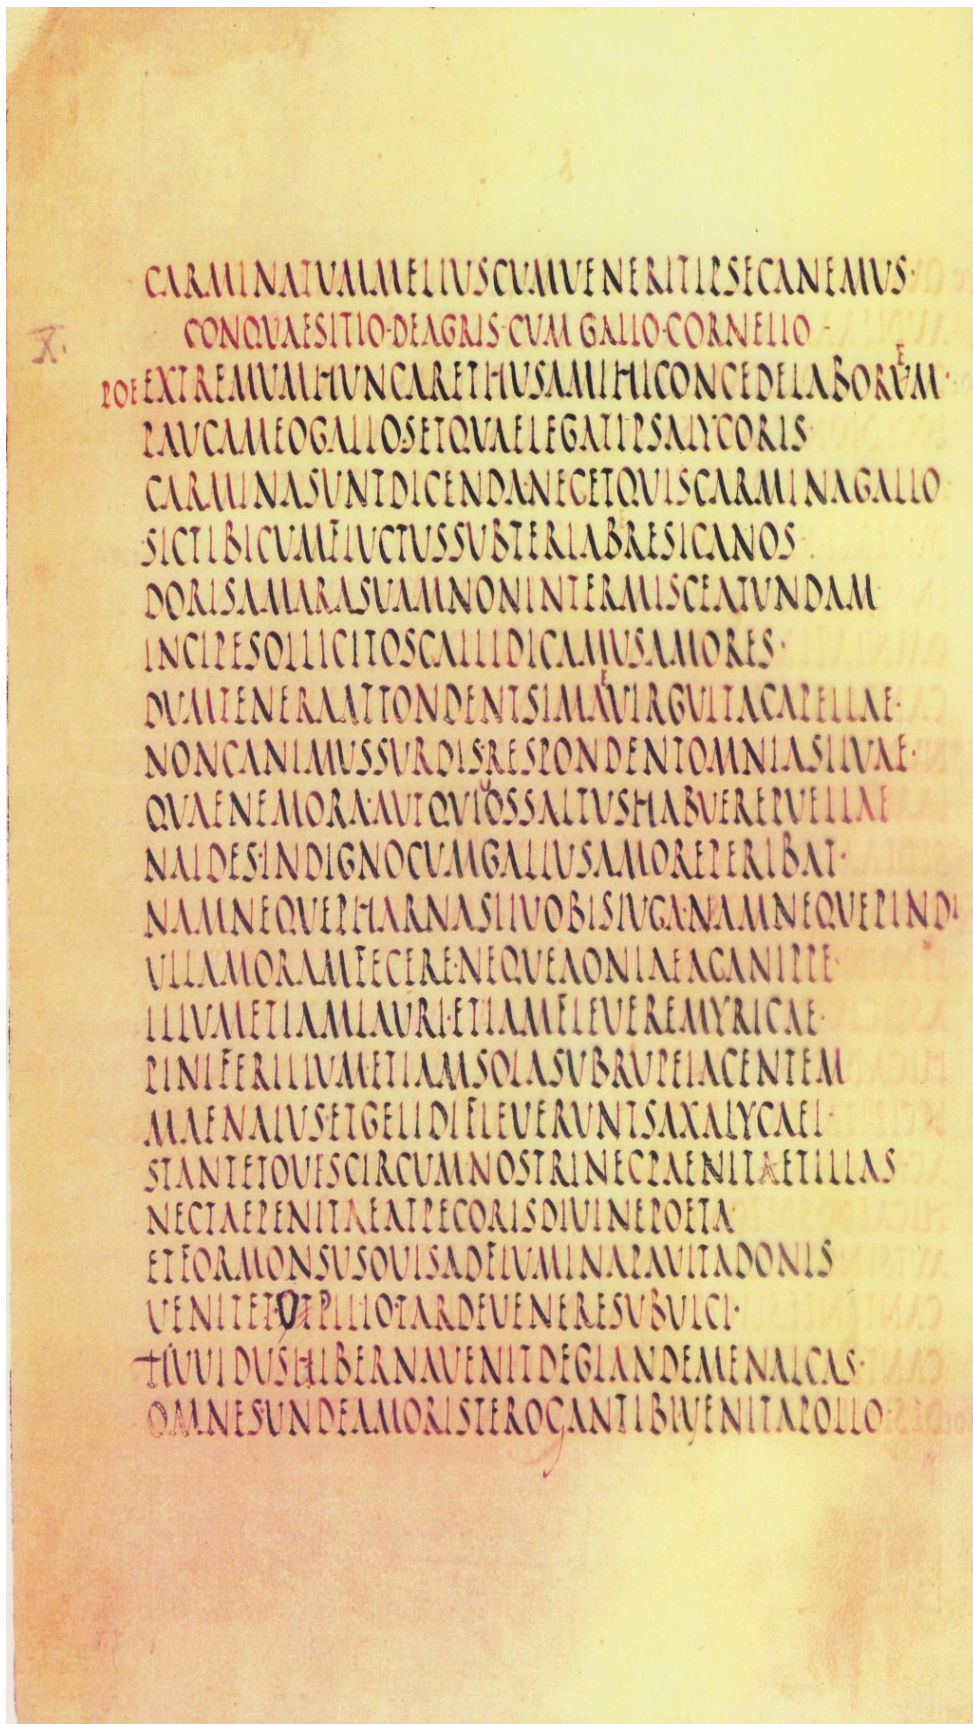 CARMINATUMMELIUSCUMVENERITIPSECANEMUS·
CONQVAESITIO·DEAGRIS·CVM GALLO·CORNELIO
X·
POE EXTREMUMHUNCARETHUSAMIHICONCEDELABORVM·
PAUCAMEOGALLO·SETQVAELEGATIPSALYCORIS
CARMINASUNTDICENDA·NECETQVISCARMINAGALLO
SICTIBICVMFLUCTUSSUBTERLABRESICANOS
DORISAMARASVAMNONINTERMISCEATVNDAM
INCIPESOLLICITOSGALLIDICAMUSAMORES·
DVMTENERAATTONDENTSIMAEVIRGULTACAPELLAE·
NONCANIMUSSVRDIS·RESPONDENTOMNIASILVAE·
QVAENEMORA·AUTQVIVOSSALTUSHABUEREPUELLAE
NAIDES·INDIGNOCUMGALLUSAMOREPERIBAT·
NAMNEQVEPHARNASIIVOBISIUGA·NAMNEQVEPINDI
VLLAMORAMFECERE·NEQVEAONIAEAGANIPPE·
ILLVMETIAMLAVRI·ETIAMFLEVEREMYRICAE·
PINIFERILLVM·ETIAMSOLASUBRUPEIACENTEM
MAENALUS·ETGELIDIFLEVERUNTSAXALYCAEI·
STANTETOVESCIRCUMNOSTRINECPAENITAETILLAS
NECTAEPENITAEATPECORISDIVINEPOETA
ETFORMONSUSOVISADFLVMINAPAVITADONIS
VENITETUTPILIO·TARDEVENERESUBULCI·
HVVIDUSHIBERNAVENITDEGLANDEMENALCAS·
OMNESUNDEAMORISTEROGANTIBIVENITAPOLLO·